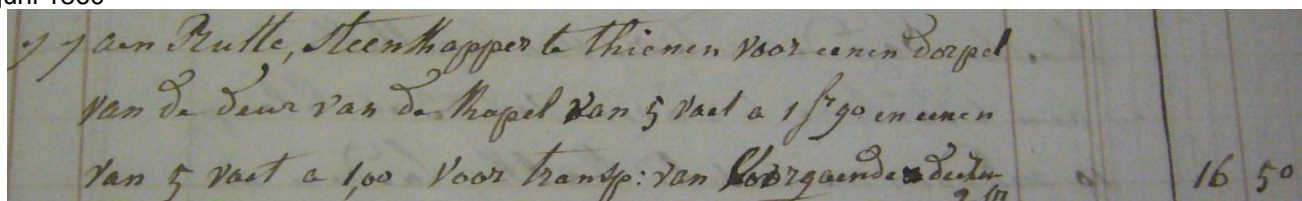 juni 1860
" " aen Rutte, steenkapper te thienen voor eenen dorpel
van de deur van de kapel van 5 vaet a 1 fr 90 en eenen
van 5 vaet a 1,00 voor transp: van voorgaende 16 50
2 fr